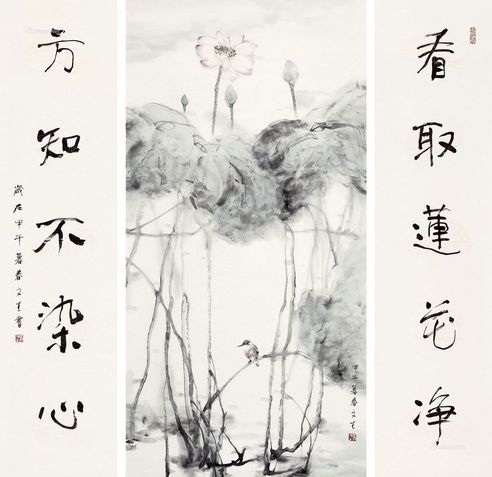 看取蓮花净
方知不染心
歲在甲午暮春文生書
甲午暮春文生